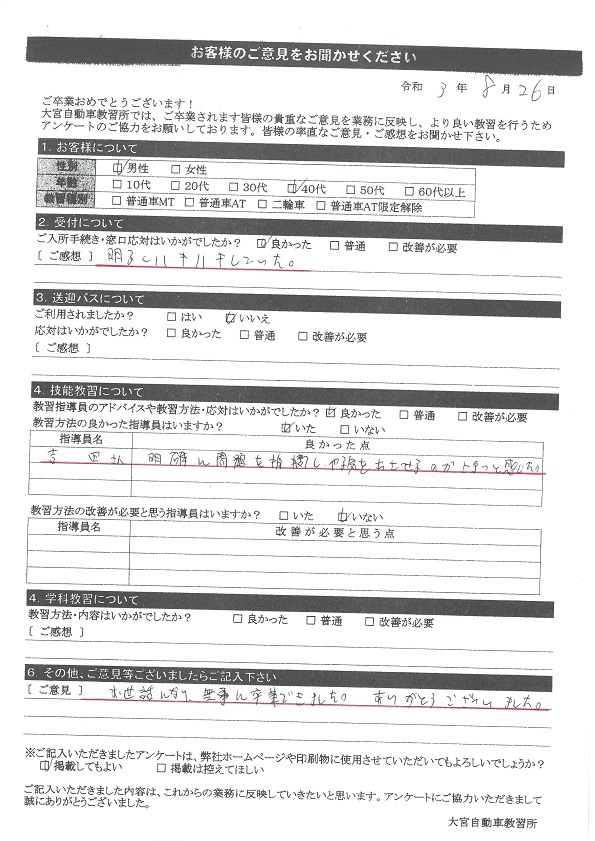 お客様のご意見をお聞かせください
令和 3 年 8 月 26 日
ご卒業おめでとうございます！
大宮自動車教習所では、ご卒業されます皆様の貴重なご意見を業務に反映し、より良い教習を行うため
アンケートのご協力をお願いしております。皆様の率直なご意見・ご感想をお聞かせ下さい。
1. お客様について
性別 ☑男性 □女性
年齢 □10代 □20代 □30代 ☑40代 □50代 □60代以上
教習種別 □普通車MT □普通車AT □二輪車 □普通車AT限定解除
2. 受付について
ご入所手続き・窓口応対はいかがでしたか？ ☑良かった □普通 □改善が必要
〔ご感想〕 明るくハキハキしていた。
3. 送迎バスについて
ご利用されましたか？ □はい ☑いいえ
応対はいかがでしたか？ □良かった □普通 □改善が必要
〔ご感想〕
4. 技能教習について
教習指導員のアドバイスや教習方法・応対はいかがでしたか？ ☑良かった □普通 □改善が必要
教習方法の良かった指導員はいますか？ ☑いた □いない
指導員名 良かった点
吉田さん 明確に問題を指摘し
教習方法の改善が必要と思う指導員はいますか？ □いた ☑いない
指導員名 改善が必要と思う点
4. 学科教習について
教習方法・内容はいかがでしたか？ □良かった □普通 □改善が必要
〔ご感想〕
6. その他、ご意見等ございましたらご記入下さい
〔ご意見〕 お世話になり、無事に卒業できました。 ありがとうございました。
※ご記入いただきましたアンケートは、弊社ホームページや印刷物に使用させていただいてもよろしいでしょうか？
☑掲載してもよい □掲載は控えてほしい
ご記入いただきました内容は、これからの業務に反映していきたいと思います。アンケートにご協力いただきまして
誠にありがとうございました。
大宮自動車教習所